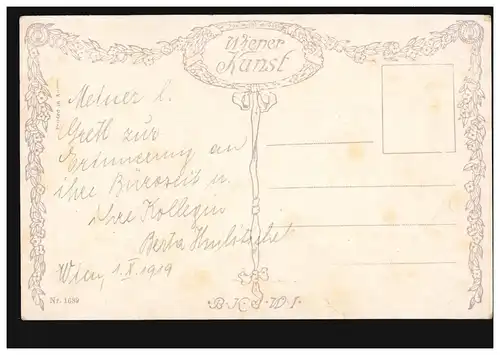 Wiener
Kunst
Meiner l.
Gretl zur
Erinnerung an
ihre Bürozeit u.
ihre Kollegin
Berta
Wien, 1.X.1919
Nr. 1689
B.K.W.I